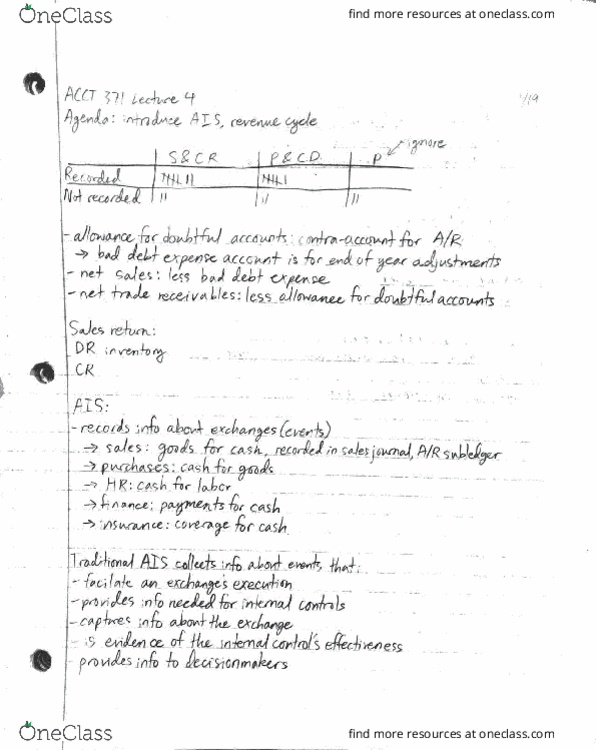 OneClass
find more resources at oneclass.com
ACCT 371 Lecture 4
1/19
Agenda: introduce AIS, revenue cycle
ignore
S&CR P&CD P
Recorded
Not recorded || || ||
- allowance for doubtful accounts: contra-account for A/R
→ bad debt expense account is for end of year adjustments
- net sales: less bad debt expense
- net trade receivables: less allowance for doubtful accounts
Sales return:
DR inventory
CR
AIS:
- records info about exchanges (events)
→ sales: goods for cash, recorded in sales journal, A/R subledger
→ purchases: cash for goods
→ HR: cash for labor
→ finance: payments for cash
→ insurance: coverage for cash
Traditional AIS collects info about events that:
- facilate an exchange's execution
- provides info needed for internal controls
- captures info about the exchange
- is evidence of the internal control's effectiveness
- provides info to decisionmakers
OneClass
find more resources at oneclass.com